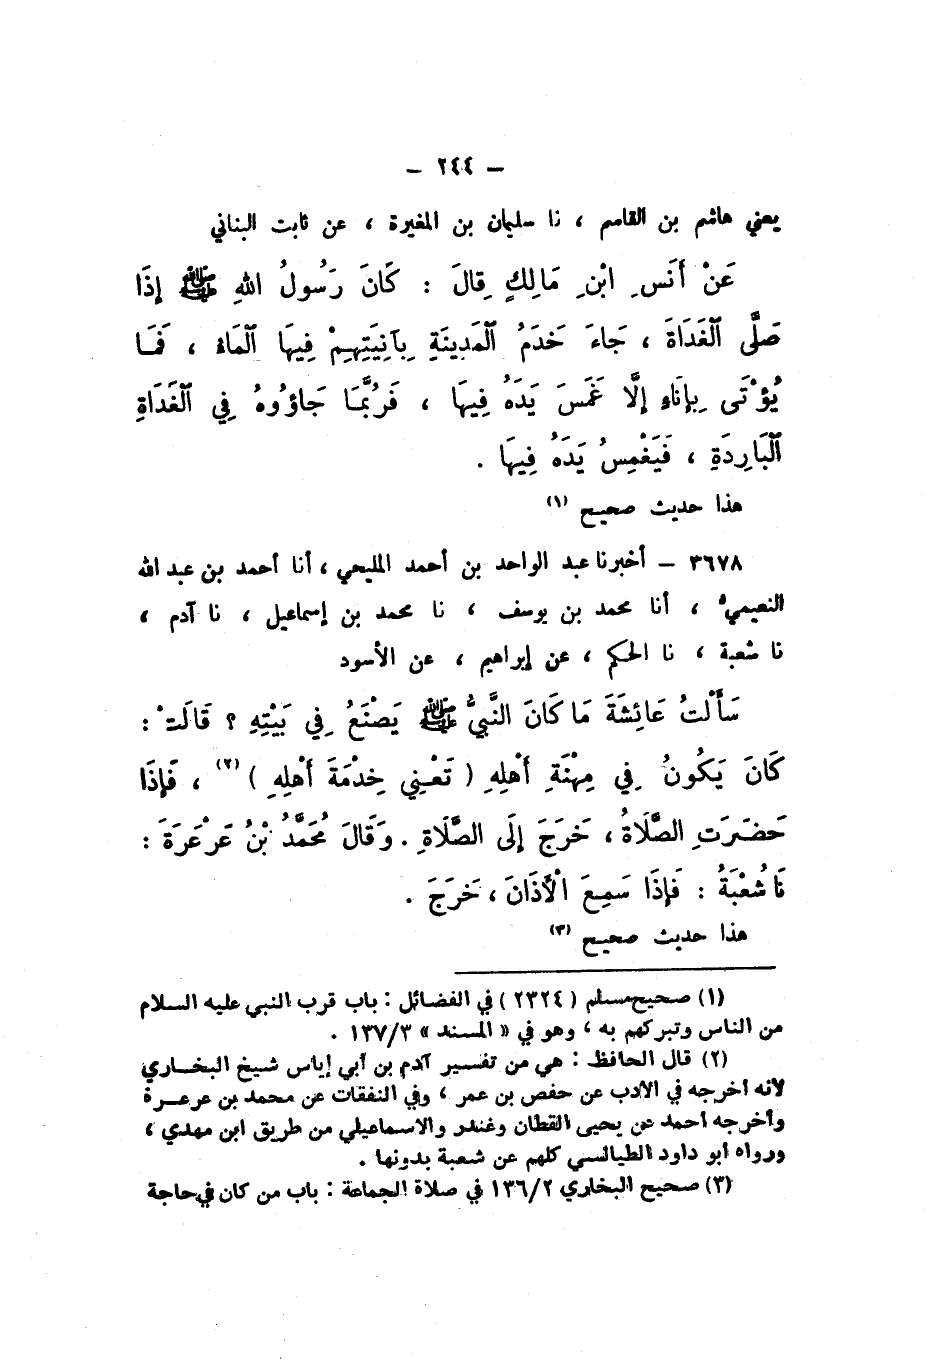 – ٢٤٤ –
يعني هاشم بن القاسم ، نا سليمان بن المغيرة ، عن ثابت البناني
عَنْ أَنَسِ ابْنِ مَالِكٍ قَالَ : كَانَ رَسُولُ اللهِ ﷺ إِذَا
صَلَّى ٱلْغَدَاةَ ، جَاءَ خَدَمُ ٱلْمَدِينَةِ بِآنِيَتِهِمْ فِيهَا ٱلْمَاءُ ، فَمَا
يُؤْتَى بِإِنَاءٍ إِلَّا غَمَسَ يَدَهُ فِيهَا ، فَرُبَّمَا جَاؤُوهُ فِي ٱلْغَدَاةِ
ٱلْبَارِدَةِ ، فَيَغْمِسُ يَدَهُ فِيهَا .
هذا حديث صحيح (١)
٣٦٧٨ – أخبرنا عبد الواحد بن أحمد المليحي ، أنا أحمد بن عبد الله
النعيميُّ ، أنا محمد بن يوسف ، نا محمد بن إسماعيل ، نا آدم ،
نا شعبة ، نا الحكم ، عن إبراهيم ، عن الأسود
سَأَلْتُ عَائِشَةَ مَا كَانَ النَّبِيُّ ﷺ يَصْنَعُ فِي بَيْتِهِ ؟ قَالَتْ :
كَانَ يَكُونُ فِي مِهْنَةِ أَهْلِهِ ( تَعْنِي خِدْمَةَ أَهْلِهِ ) (٢) ، فَإِذَا
حَضَرَتِ الصَّلَاةُ ، خَرَجَ إِلَى الصَّلَاةِ . وَقَالَ مُحَمَّدُ بْنُ عَرْعَرَةَ :
نَا شُعْبَةُ : فَإِذَا سَمِعَ الْأَذَانَ ، خَرَجَ .
هذا حديث صحيح (٣)
(١) صحيح مسلم ( ٢٣٢٤ ) في الفضائل : باب قرب النبي عليه السلام
من الناس وتبركهم به ، وهو في « المسند » ١٣٧/٣ .
(٢) قال الحافظ : هي من تفسير آدم بن أبي إياس شيخ البخاري
لأنه أخرجه في الأدب عن حفص بن عمر ، وفي النفقات عن محمد بن عرعرة
وأخرجه أحمد عن يحيى القطان وغندر والاسماعيلي من طريق ابن مهدي ،
ورواه أبو داود الطيالسي كلهم عن شعبة بدونها .
(٣) صحيح البخاري ١٣٦/٢ في صلاة الجماعة : باب من كان في حاجة